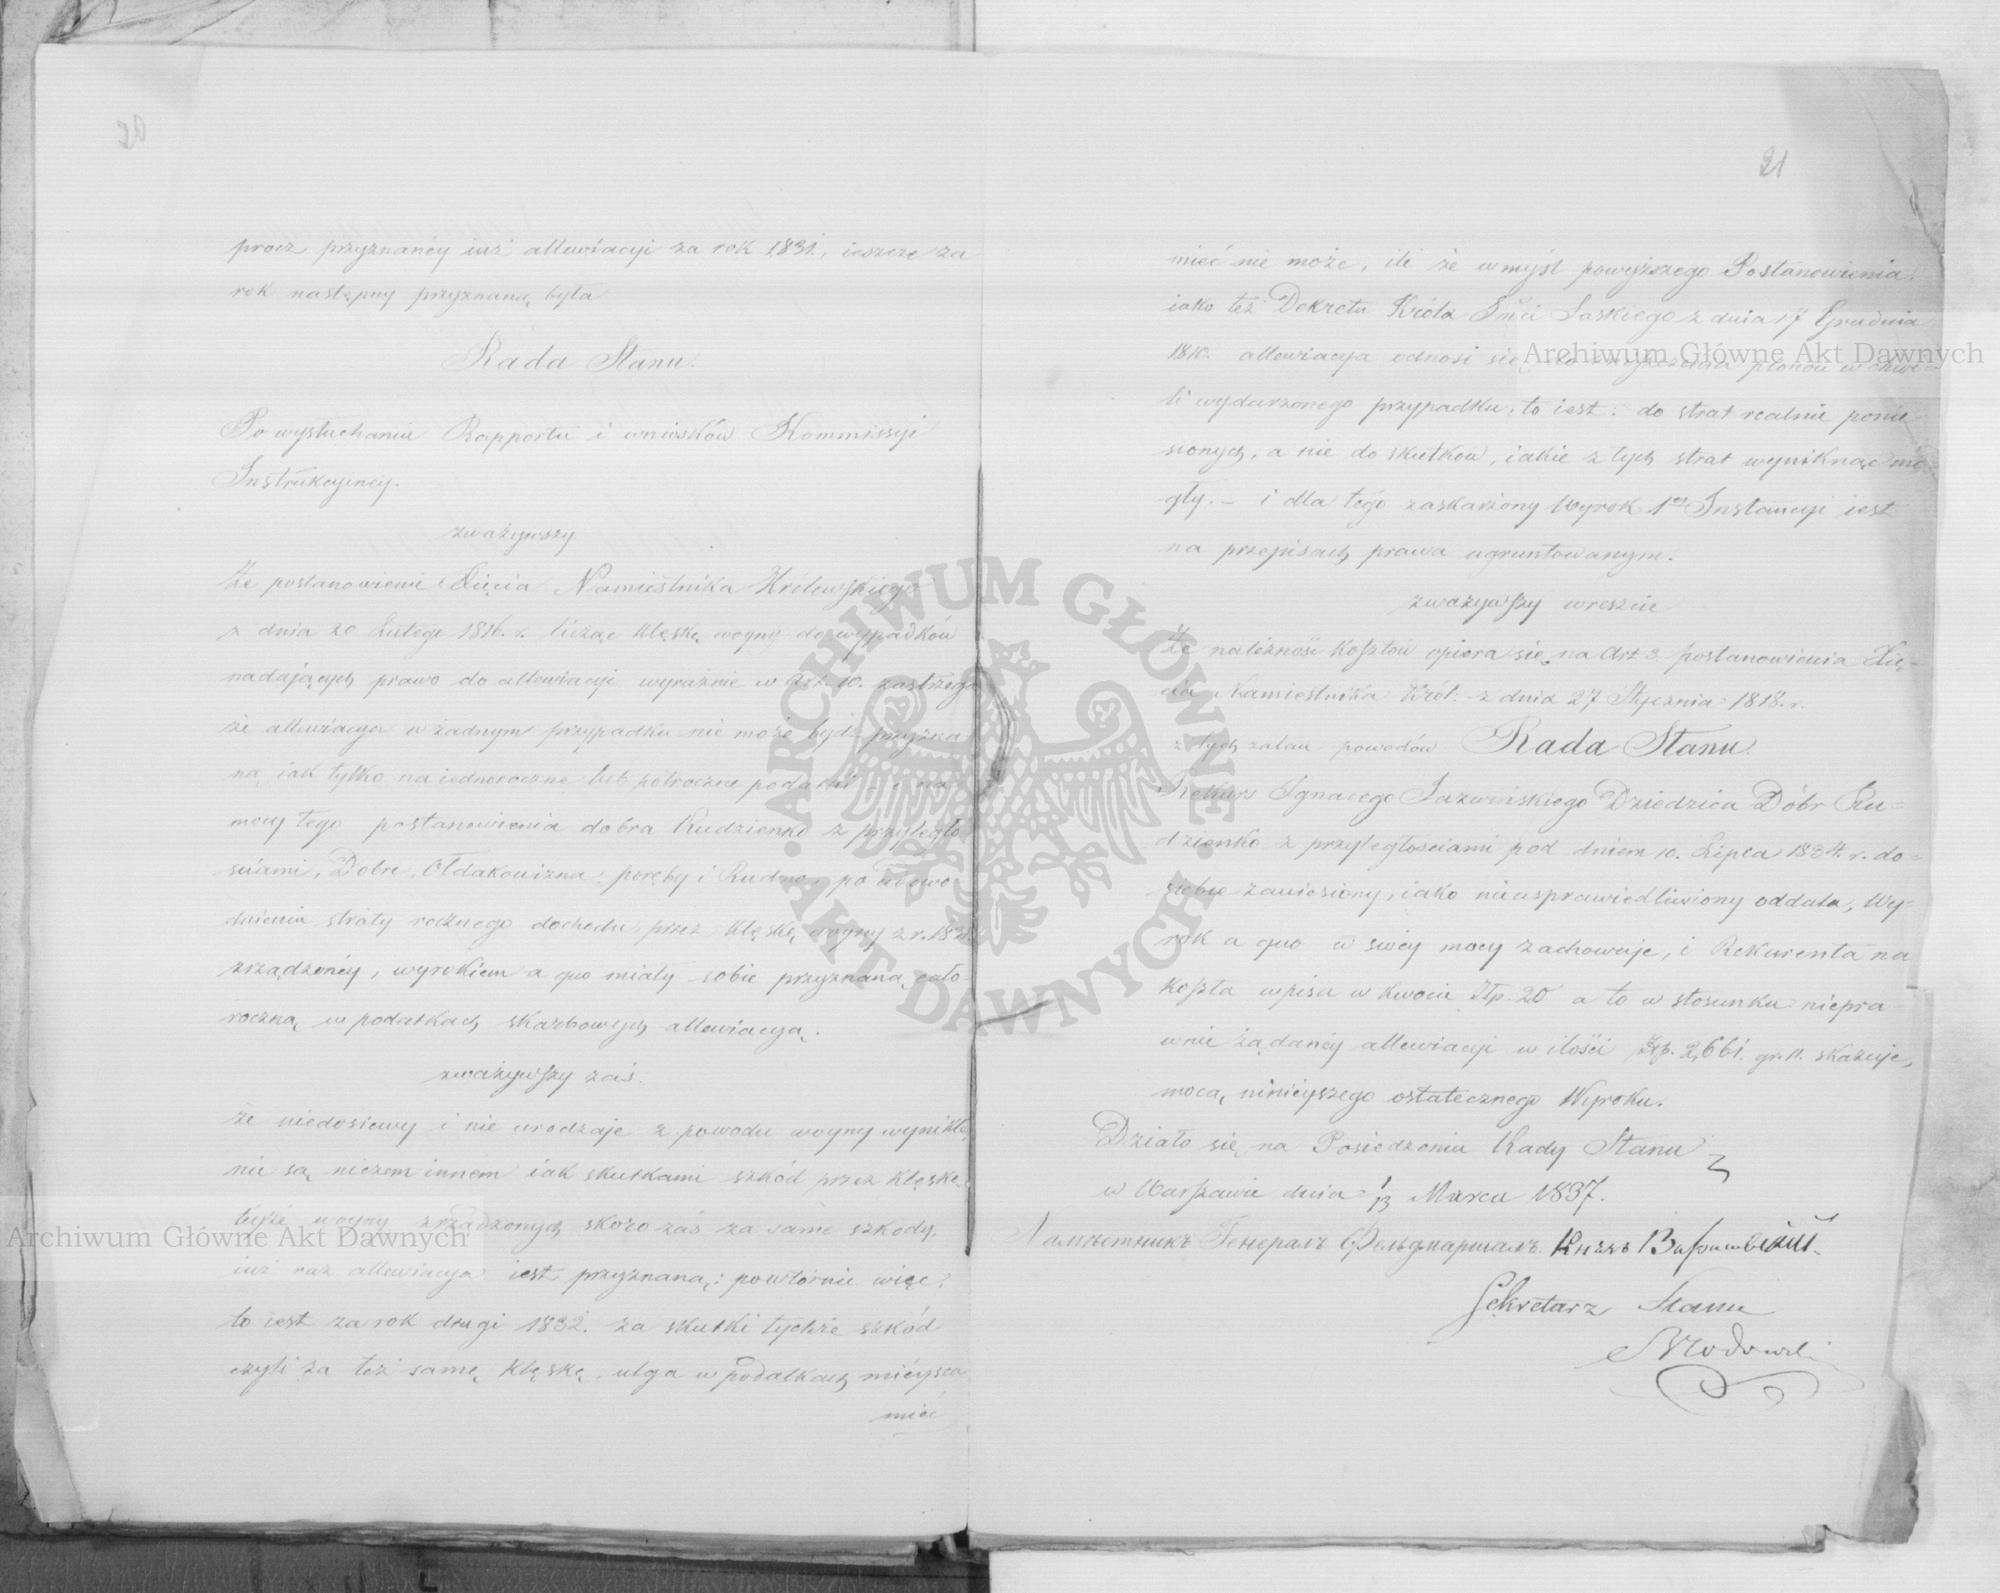 20
procz przyznanéy iuż allewiacyi za rok 1831., ieszcze za
rok następny przyznaną była
Rada Stanu.
Po wysłuchaniu Rapportu i wniosków Kommissyi
Instrukcyinéy.
zważywszy
Że postanowienie Xięcia Namiestnika Królewskiego
z dnia 20 Lutego 1816. r. licząc klęskę woyny do wypadków
nadaiących prawo do allewiacyi wyraźnie w Art. 10. zastrzega
że allewiacya w żadnym przypadku nie może bydź przyzna
ną, iak tylko na iednoroczne lub półroczne podatki – i na
mocy tego postanowienia dobra Rudzienko z przyległo
sciami, Dobre, Ołdakowizna, poręby i Rudno, po udowo
dnieniu straty rocznego dochodu, przez klęskę woyny z r. 1831
zrządzonéy, wyrokiem a quo miały sobie przyznaną cało
roczną w podatkach skarbowych allewiacyą.
zważywszy zaś.
że niedosiewy i nie urodzaje z powodu woyny wynikłe,
nie są niczem innem iak skutkami szkód przez klęskę
teyże woyny zrządzonych, skoro zaś za same szkody,
iuż raz allewiacya iest przyznaną; powtórnie więc,
to iest za rok drugi 1832. za skutki tychże szkód
czyli za też samę klęskę, ulga w podatkach mieysca
mieć
21
mieć nie może, ile że w myśl powyższego Postanowienia
iako też Dekretu Króla Jmci Saskiego z dnia 17 Grudnia
1810. allewiacya odnosi się do zniszczenia plonów w chwi-
li wydarzonego przypadku, to iest: do strat realnie ponie-
sionych, a nie do skutków, iakie z tych strat wyniknąć mo
gły. – i dla tego zaskarżony Wyrok 1éy Instancyi iest
na przepisach prawa ugruntowanym.
zważywszy wreszcie
Że należność kosztów opiera się na Art 3. postanowienia Xię-
cia Namiestnika Król: z dnia 27 Stycznia 1818. r.
z tych zatem powodów Rada Stanu.
Rekurs Ignacego Jazwinskiego Dziedzica Dóbr Ru-
dzienko z przyległościami pod dniem 10. Lipca 1834. r. do-
siebie zaniesiony, iako nieusprawiedliwiony oddala, Wy-
rok a quo w swéy mocy zachowuje, i Rekurenta na
koszta wpisu w kwocie Złp. 20 a to w stosunku niepra-
wnie żądanéy allewiacyi w ilości Złp. 2,661. gr. 11. skazuje,
mocą ninieyszego ostatecznego Wyroku.
Działo się na Posiedzeniu Rady Stanu
w Warszawie dnia 1/13 Marca 1837.
Намѣстникъ Генералъ Фельдмаршалъ Князь Варшавскій.
Sekretarz Stanu
Archiwum Główne Akt Dawnych
Archiwum Główne Akt Dawnych
ARCHIWUM GŁÓWNE
AKT DAWNYCH